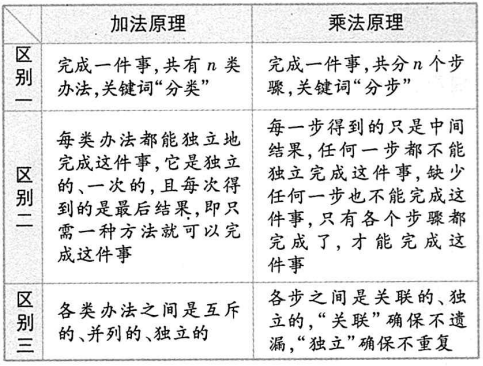 加法原理
乘法原理
区别一
完成一件事,共有 n 类
办法,关键词“分类”
完成一件事,共分 n 个步
骤,关键词“分步”
区别二
每类办法都能独立地
完成这件事,它是独立
的、一次的,且每次得
到的是最后结果,即只
需一种方法就可以完
成这件事
每一步得到的只是中间
结果,任何一步都不能
独立完成这件事,缺少
任何一步也不能完成这
件事,只有各个步骤都
完成了,才能完成这
件事
区别三
各类办法之间是互斥
的、并列的、独立的
各步之间是关联的、独
立的,“关联”确保不遗
漏,“独立”确保不重复